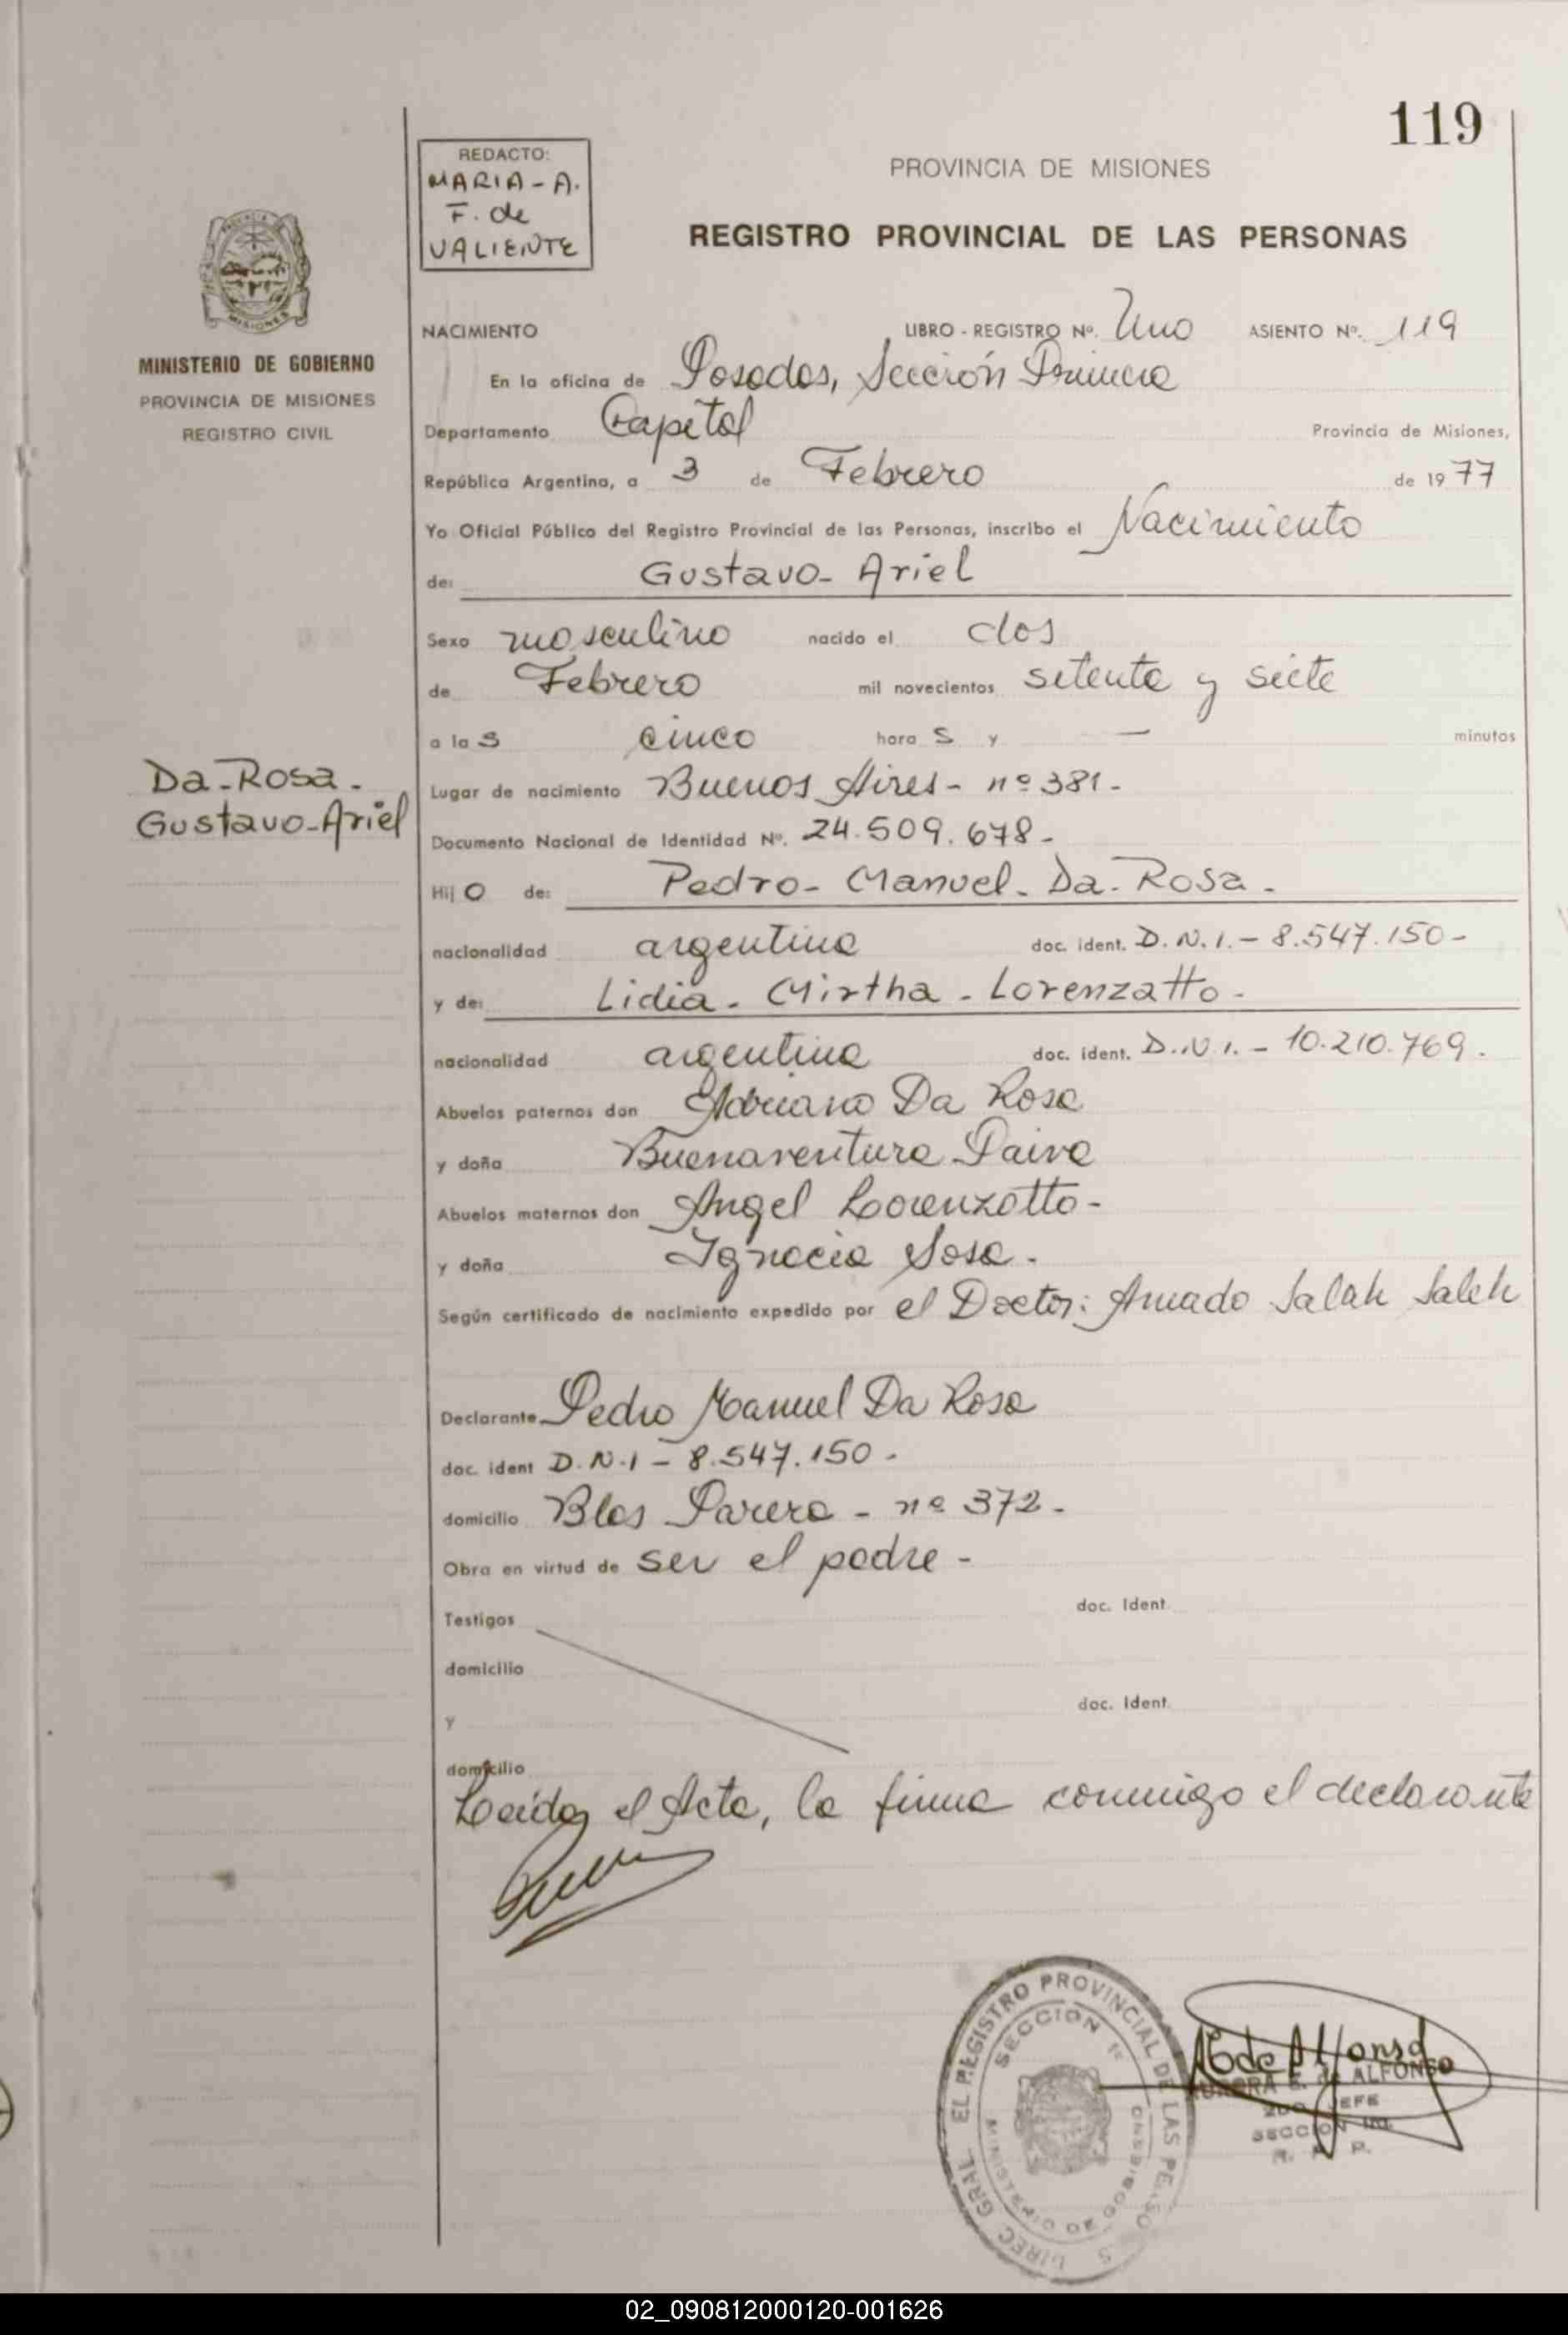 119
REDACTO:
MARIA - A.
F. de
VALIENTE
PROVINCIA DE MISIONES
REGISTRO PROVINCIAL DE LAS PERSONAS
MINISTERIO DE GOBIERNO
PROVINCIA DE MISIONES
REGISTRO CIVIL
NACIMIENTO LIBRO - REGISTRO Nº. Uno ASIENTO Nº. 119
En la oficina de Posadas, Sección Primera
Departamento Capital Provincia de Misiones,
República Argentina, a 3 de Febrero de 1977
Yo Oficial Público del Registro Provincial de las Personas, inscribo el Nacimiento
de: Gustavo - Ariel
Sexo masculino nacido el dos
de Febrero mil novecientos setenta y siete
a las cinco horas y — minutos
Da - Rosa -
Gustavo - Ariel
Lugar de nacimiento Buenos Aires - nº 381 -
Documento Nacional de Identidad Nº. 24.509.678 -
Hijo de: Pedro - Manuel - Da - Rosa -
nacionalidad argentina doc. ident. D.N.I. - 8.547.150 -
y de: Lidia - Mirtha - Lorenzatto -
nacionalidad argentina doc. ident. D.N.I. - 10.210.769 -
Abuelos paternos don Adriano Da Rosa
y doña Buenaventura Paiva
Abuelos maternos don Angel Lorenzatto -
y doña Ignacia Sosa -
Según certificado de nacimiento expedido por el Doctor: Amado Salah Saleh
Declarante Pedro Manuel Da Rosa
doc. ident D.N.I - 8.547.150 -
domicilio Blas Parera - nº 372 -
Obra en virtud de ser el padre -
Testigos doc. Ident.
domicilio
y doc. Ident.
domicilio
Leida el Acta, la firma conmigo el declarante
DIREC. GRAL. EL REGISTRO PROVINCIAL DE LAS PERSO S
SECCION 1ª
MINISTERIO DE GOBIERNO
A E. de Alfonso
AURORA E. de ALFONSO
2DO JEFE
SECCION 1ra.
R. P. P.
02_090812000120-001626